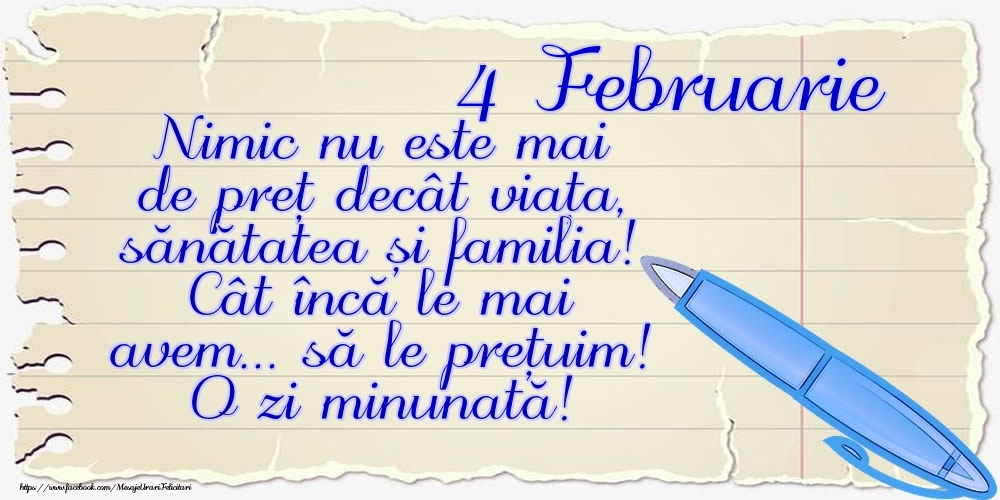 4 Februarie
Nimic nu este mai
de preț decât viața,
sănătatea și familia!
Cât încă le mai
avem... să le prețuim!
O zi minunată!
https://www.facebook.com/MesajeUrariFelicitari